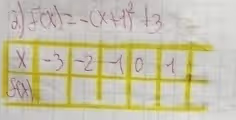 2) f(x) = -(x+1)² + 3
x -3 -2 -1 0 1
f(x)